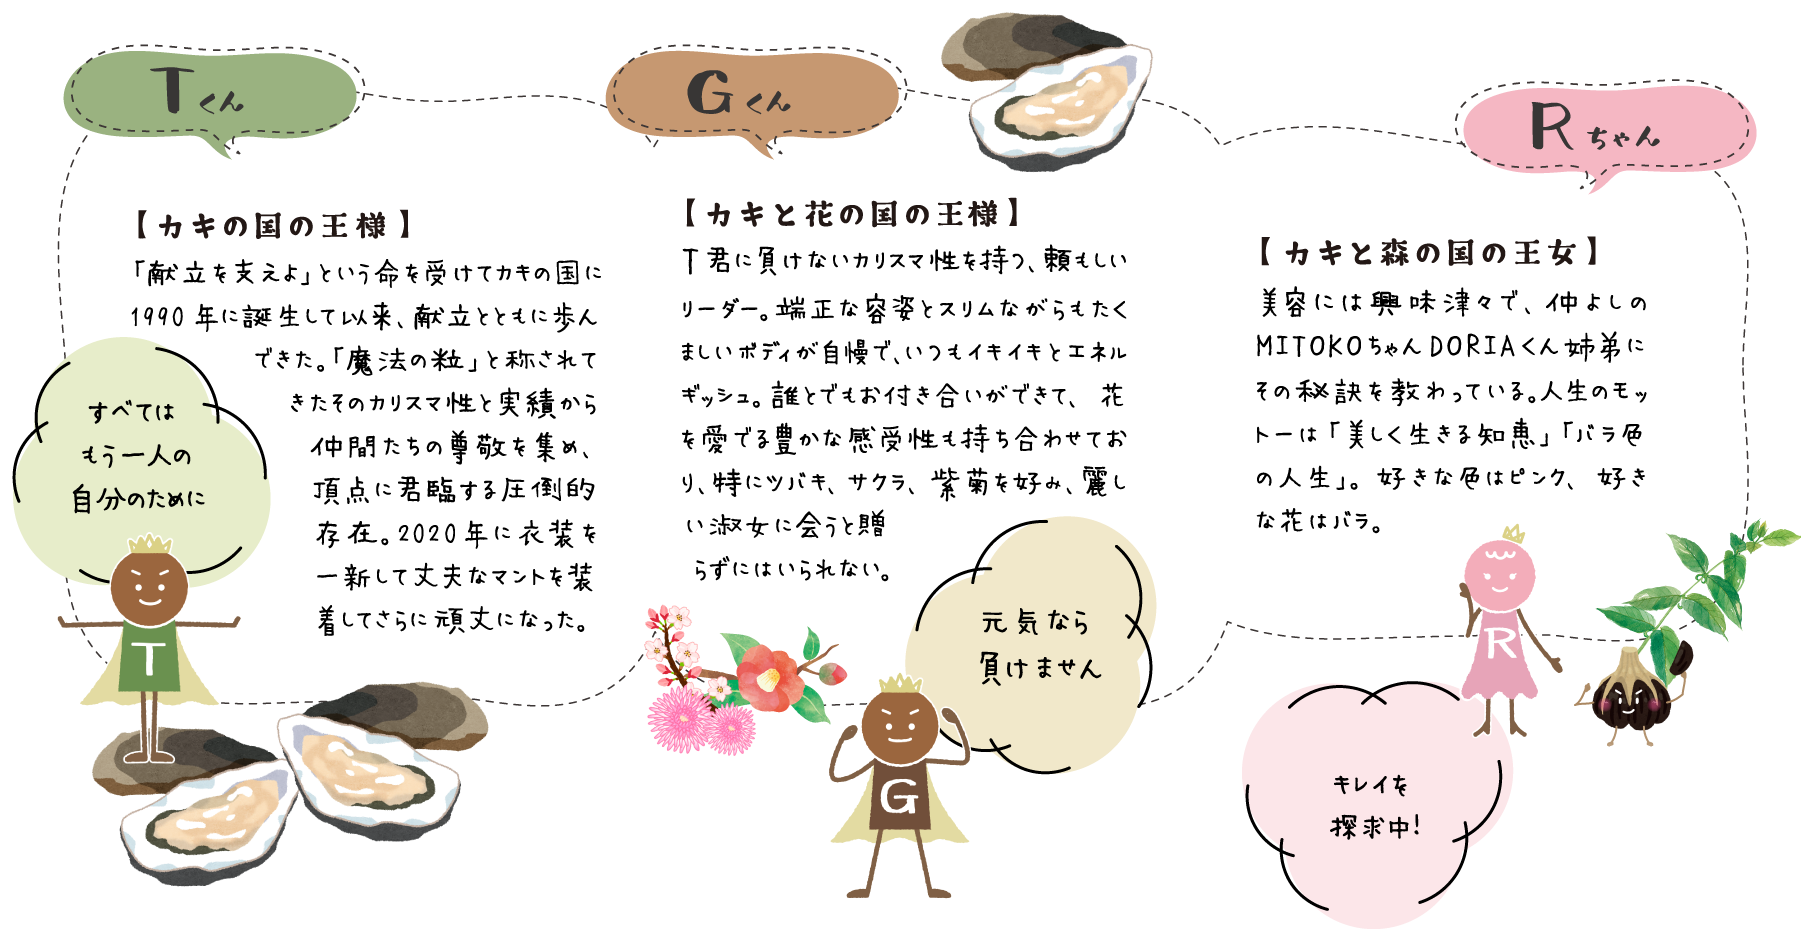 Tくん
【カキの国の王様】
「献立を支えよ」という命を受けてカキの国に
1990年に誕生して以来、献立とともに歩ん
できた。「魔法の粒」と称されて
きたそのカリスマ性と実績から
仲間たちの尊敬を集め、
頂点に君臨する圧倒的
存在。2020年に衣装を
一新して丈夫なマントを装
着してさらに頑丈になった。
すべては
もう一人の
自分のために
T
Gくん
【カキと花の国の王様】
T君に負けないカリスマ性を持つ、頼もしい
リーダー。端正な容姿とスリムながらもたく
ましいボディが自慢で、いつもイキイキとエネル
ギッシュ。誰とでもお付き合いができて、花
を愛でる豊かな感受性も持ち合わせてお
り、特にツバキ、サクラ、紫菊を好み、麗し
い淑女に会うと贈
らずにはいられない。
元気なら
負けません
G
Rちゃん
【カキと森の国の王女】
美容には興味津々で、仲よしの
MITOKOちゃんDORIAくん姉弟に
その秘訣を教わっている。人生のモッ
トーは「美しく生きる知恵」「バラ色
の人生」。好きな色はピンク、好き
な花はバラ。
R
キレイを
探求中!